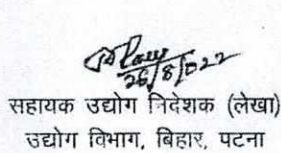 26/8/022
सहायक उद्योग निदेशक (लेखा)
उद्योग विभाग, बिहार, पटना